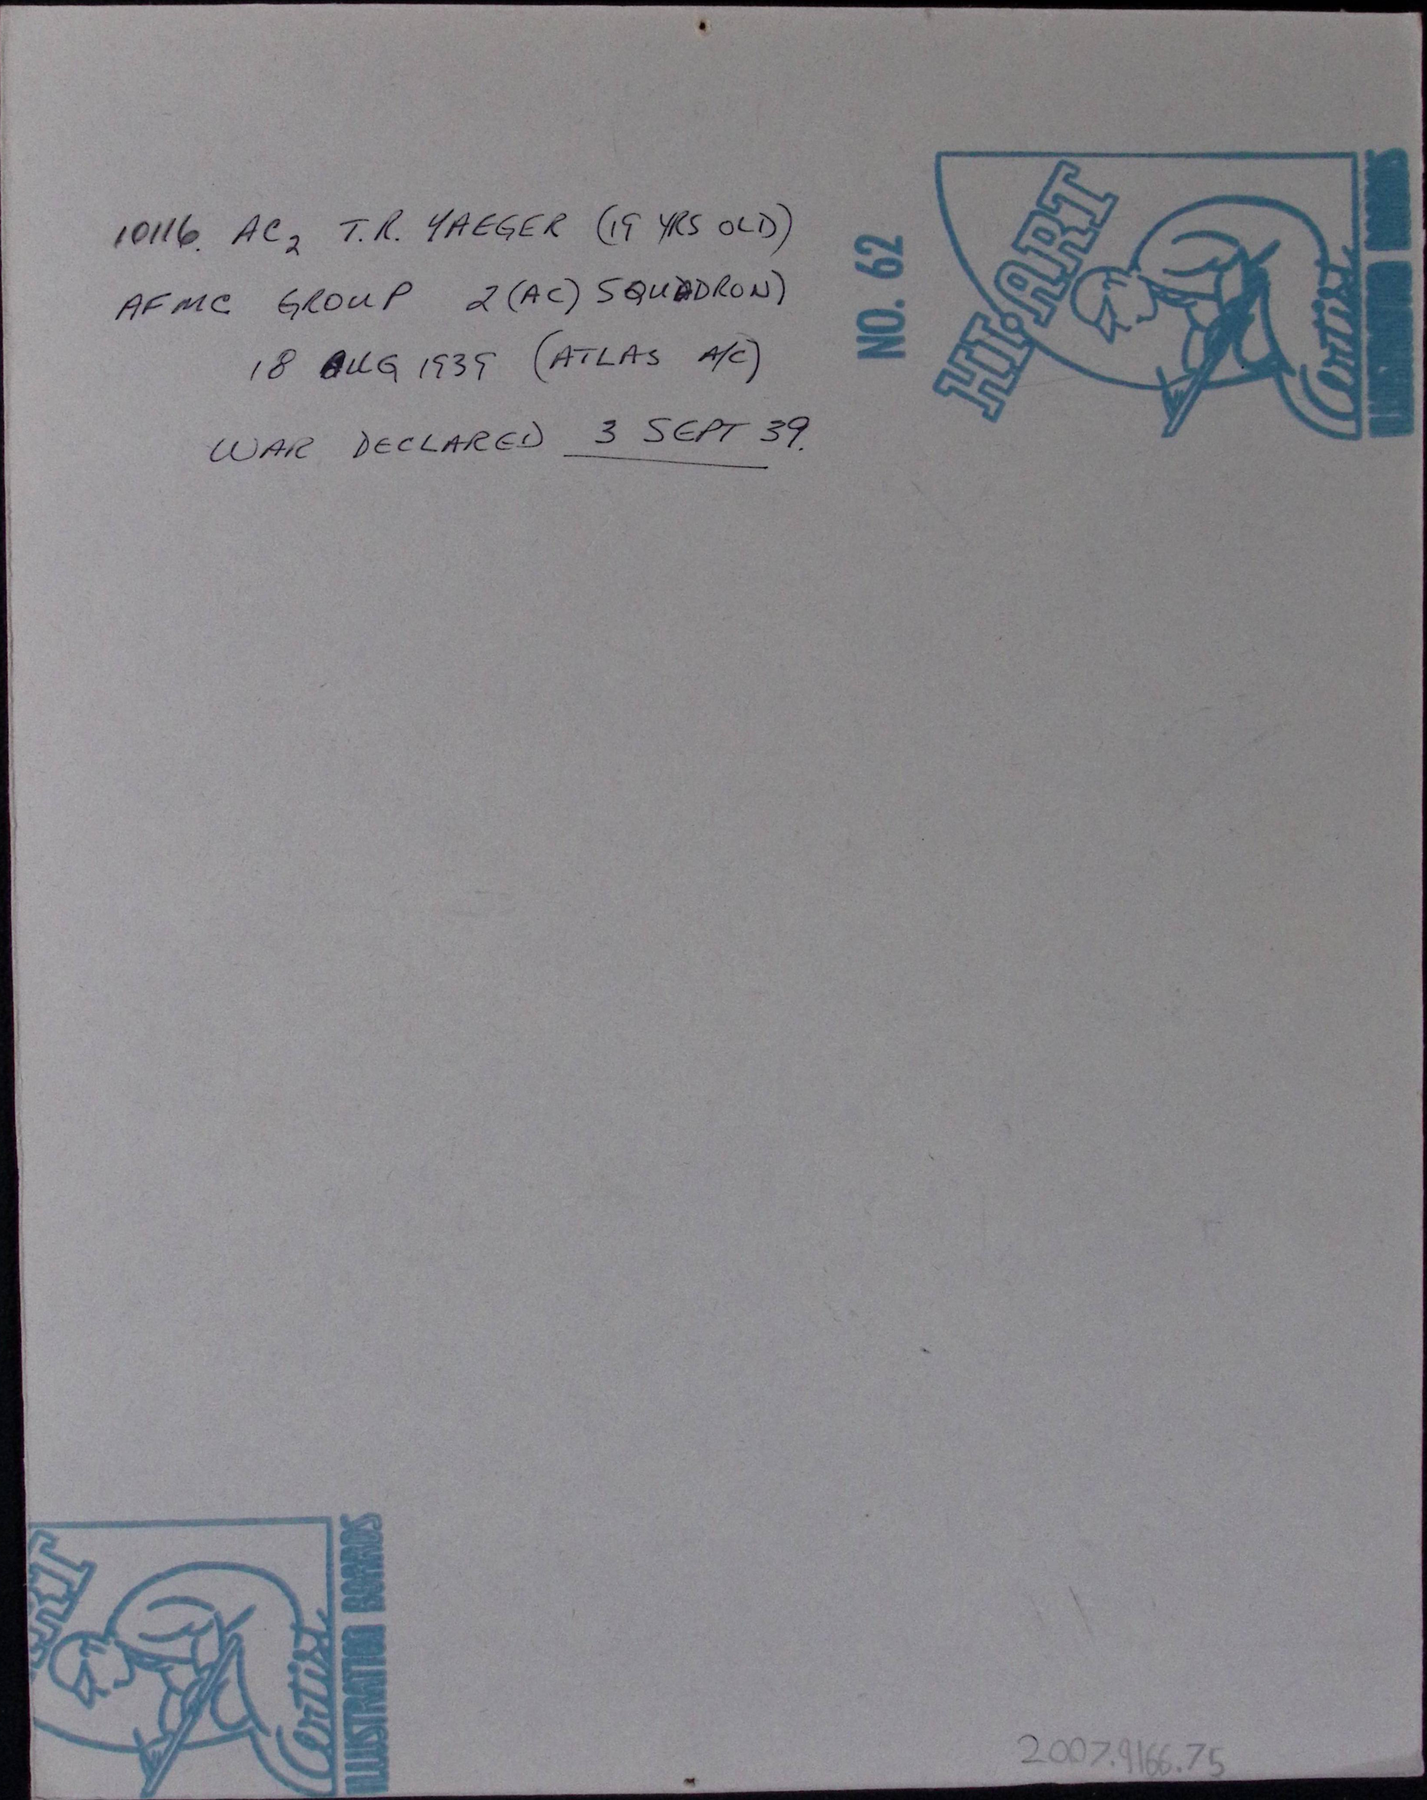 10116. AC2 T.R. YAEGER (19 YRS OLD)
AFMC GROUP 2 (AC) SQUADRON)
18 AUG 1939 (ATLAS A/C)
WAR DECLARED 3 SEPT 39.
NO. 62
HI-ART
Artist
ILLUSTRATION BOARDS
ART
Artist
ILLUSTRATION BOARDS
2007.9166.75